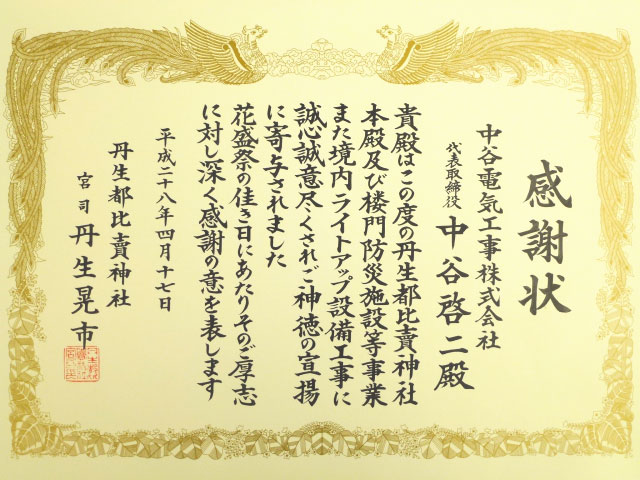 感謝状
中谷電気工事株式会社
代表取締役 中谷啓二殿
貴殿はこの度の丹生都比賣神社
本殿及び楼門防災施設等事業
また境内ライトアップ設備工事に
誠心誠意尽くされご神徳の宣揚
に寄与されました
花盛祭の佳き日にあたりそのご厚志
に対し深く感謝の意を表します
平成二十八年四月十七日
丹生都比賣神社
宮司 丹生晃市